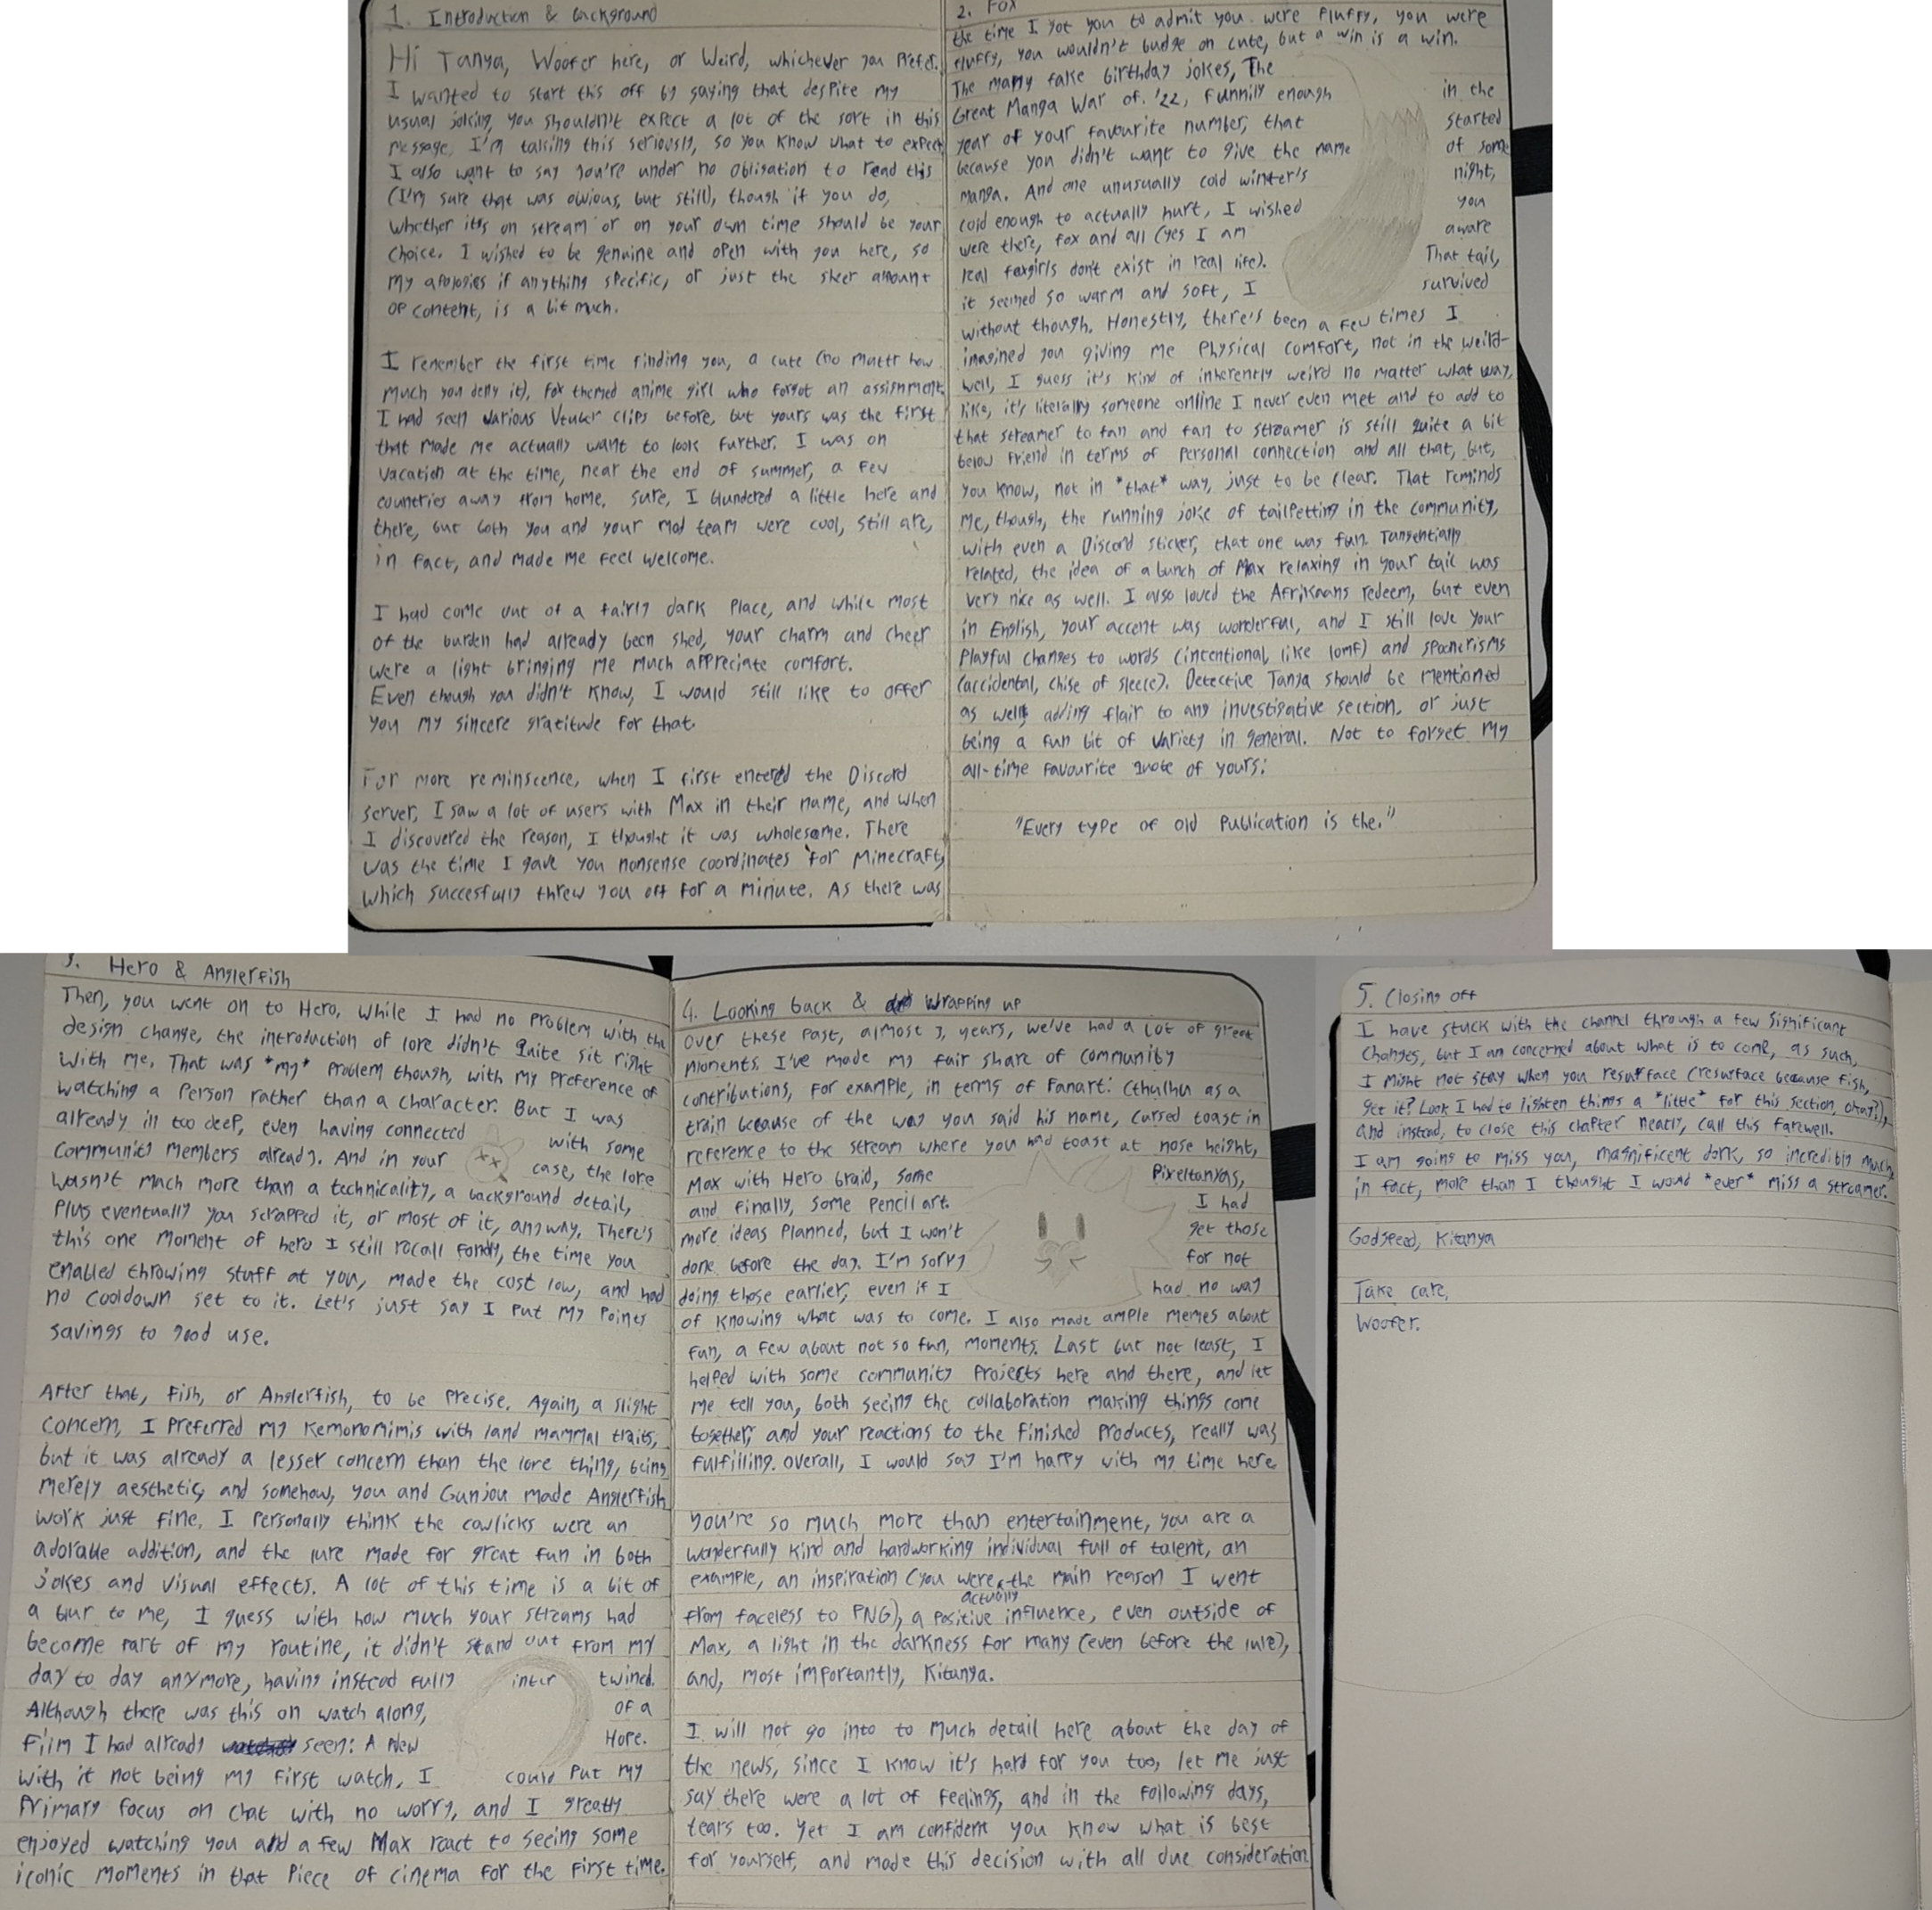 1. Introduction & background
Hi Tanya, Woofer here, or Weird, whichever you prefer.
I wanted to start this off by saying that despite my
usual joking, you shouldn't expect a lot of the sort in this
message, I'm taking this seriously, so you know what to expect
I also want to say you're under no obligation to read this
(I'm sure that was obvious, but still), though if you do,
whether it's on stream or on your own time should be your
choice. I wished to be genuine and open with you here, so
my apologies if anything specific, or just the sheer amount
of content, is a bit much.
I remember the first time finding you, a cute (no mattr how
much you deny it), fox themed anime girl who forgot an assignment.
I had seen various Vtuber clips before, but yours was the first
that made me actually want to look further. I was on
vacation at the time, near the end of summer, a few
countries away from home. Sure, I blundered a little here and
there, but both you and your mod team were cool, still are,
in fact, and made me feel welcome.
I had come out of a fairly dark place, and while most
of the burden had already been shed, your charm and cheer
were a light bringing me much appreciate comfort.
Even though you didn't know, I would still like to offer
you my sincere gratitude for that.
For more reminscence, when I first entered the Discord
server, I saw a lot of users with Max in their name, and when
I discovered the reason, I thought it was wholesome. There
was the time I gave you nonsense coordinates for Minecraft,
which succesfully threw you off for a minute. As there was
2. Fox
the time I got you to admit you were fluffy, you were
fluffy, you wouldn't budge on cute, but a win is a win.
The many fake birthday jokes, The
Great Manga War of '22, funnily enough in the
year of your favourite number, that started
because you didn't want to give the name of some
manga. And one unusually cold winter's night,
cold enough to actually hurt, I wished you
were there, fox and all (yes I am aware
real foxgirls don't exist in real life). That tail,
it seemed so warm and soft, I survived
without though. Honestly, there's been a few times I
imagined you giving me physical comfort, not in the weird-
well, I guess it's kind of inherently weird no matter what way,
like, it's literally someone online I never even met and to add to
that streamer to fan and fan to streamer is still quite a bit
below friend in terms of personal connection and all that, but,
you know, not in *that* way, just to be clear. That reminds
me, though, the running joke of tailpetting in the community,
with even a Discord sticker, that one was fun. Tangentially
related, the idea of a bunch of Max relaxing in your tail was
very nice as well. I also loved the Afrikaans redeem, but even
in English, your accent was wonderful, and I still love your
playful changes to words (intentional, like lomf) and spoonerisms
(accidental, chise of sleece). Detective Tanya should be mentioned
as well, adding flair to any investigative section, or just
being a fun bit of variety in general. Not to forget my
all-time favourite quote of yours:
"Every type of old publication is the."
3. Hero & Anglerfish
Then, you went on to Hero, while I had no problem with the
design change, the introduction of lore didn't quite sit right
with me. That was *my* problem though, with my preference of
watching a person rather than a character. But I was
already in too deep, even having connected with some
community members already. And in your case, the lore
wasn't much more than a technicality, a background detail,
plus eventually you scrapped it, or most of it, anyway. There's
this one moment of hero I still recall fondly, the time you
enabled throwing stuff at you, made the cost low, and had
no cooldown set to it. Let's just say I put my points
savings to good use.
After that, fish, or Anglerfish, to be precise. Again, a slight
concern, I preferred my kemonomimis with land mammal traits,
but it was already a lesser concern than the lore thing, being
merely aesthetic, and somehow, you and Gunjou made Anglerfish
work just fine. I personally think the cowlicks were an
adorable addition, and the lure made for great fun in both
jokes and visual effects. A lot of this time is a bit of
a blur to me, I guess with how much your streams had
become part of my routine, it didn't stand out from my
day to day anymore, having instead fully inter twined.
Although there was this on watch along, of a
film I had already seen: A New Hope.
With it not being my first watch, I could put my
primary focus on chat with no worry, and I greatly
enjoyed watching you and a few Max react to seeing some
iconic moments in that piece of cinema for the first time.
4. Looking back & wrapping up
Over these past, almost 3, years, we've had a lot of great
moments. I've made my fair share of community
contributions, for example, in terms of fanart: Cthulhu as a
train because of the way you said his name, cursed toast in
reference to the stream where you had toast at nose height,
Max with Hero braid, some Pixeltanyas,
and finally, some pencil art. I had
more ideas planned, but I won't get those
done before the day. I'm sorry for not
doing those earlier, even if I had no way
of knowing what was to come. I also made ample memes about
fun, a few about not so fun, moments. Last but not least, I
helped with some community projects here and there, and let
me tell you, both seeing the collaboration making things come
together, and your reactions to the finished products, really was
fulfilling. Overall, I would say I'm happy with my time here
You're so much more than entertainment, you are a
wonderfully kind and hardworking individual full of talent, an
example, an inspiration (you were actually the main reason I went
from faceless to PNG), a positive influence, even outside of
Max, a light in the darkness for many (even before the lure),
and, most importantly, Kitanya.
I will not go into to much detail here about the day of
the news, since I know it's hard for you too, let me just
say there were a lot of feelings, and in the following days,
tears too. Yet I am confident you know what is best
for yourself, and made this decision with all due consideration
5. Closing off
I have stuck with the channel through a few significant
changes, but I am concerned about what is to come, as such,
I might not stay when you resurface (resurface because fish,
get it? Look I had to lighten things a *little* for this section, okay?),
and instead, to close this chapter neatly, call this farewell.
I am going to miss you, magnificent dork, so incredibly much,
in fact, more than I thought I would *ever* miss a streamer.
Godspeed, Kitanya
Take care,
Woofer.